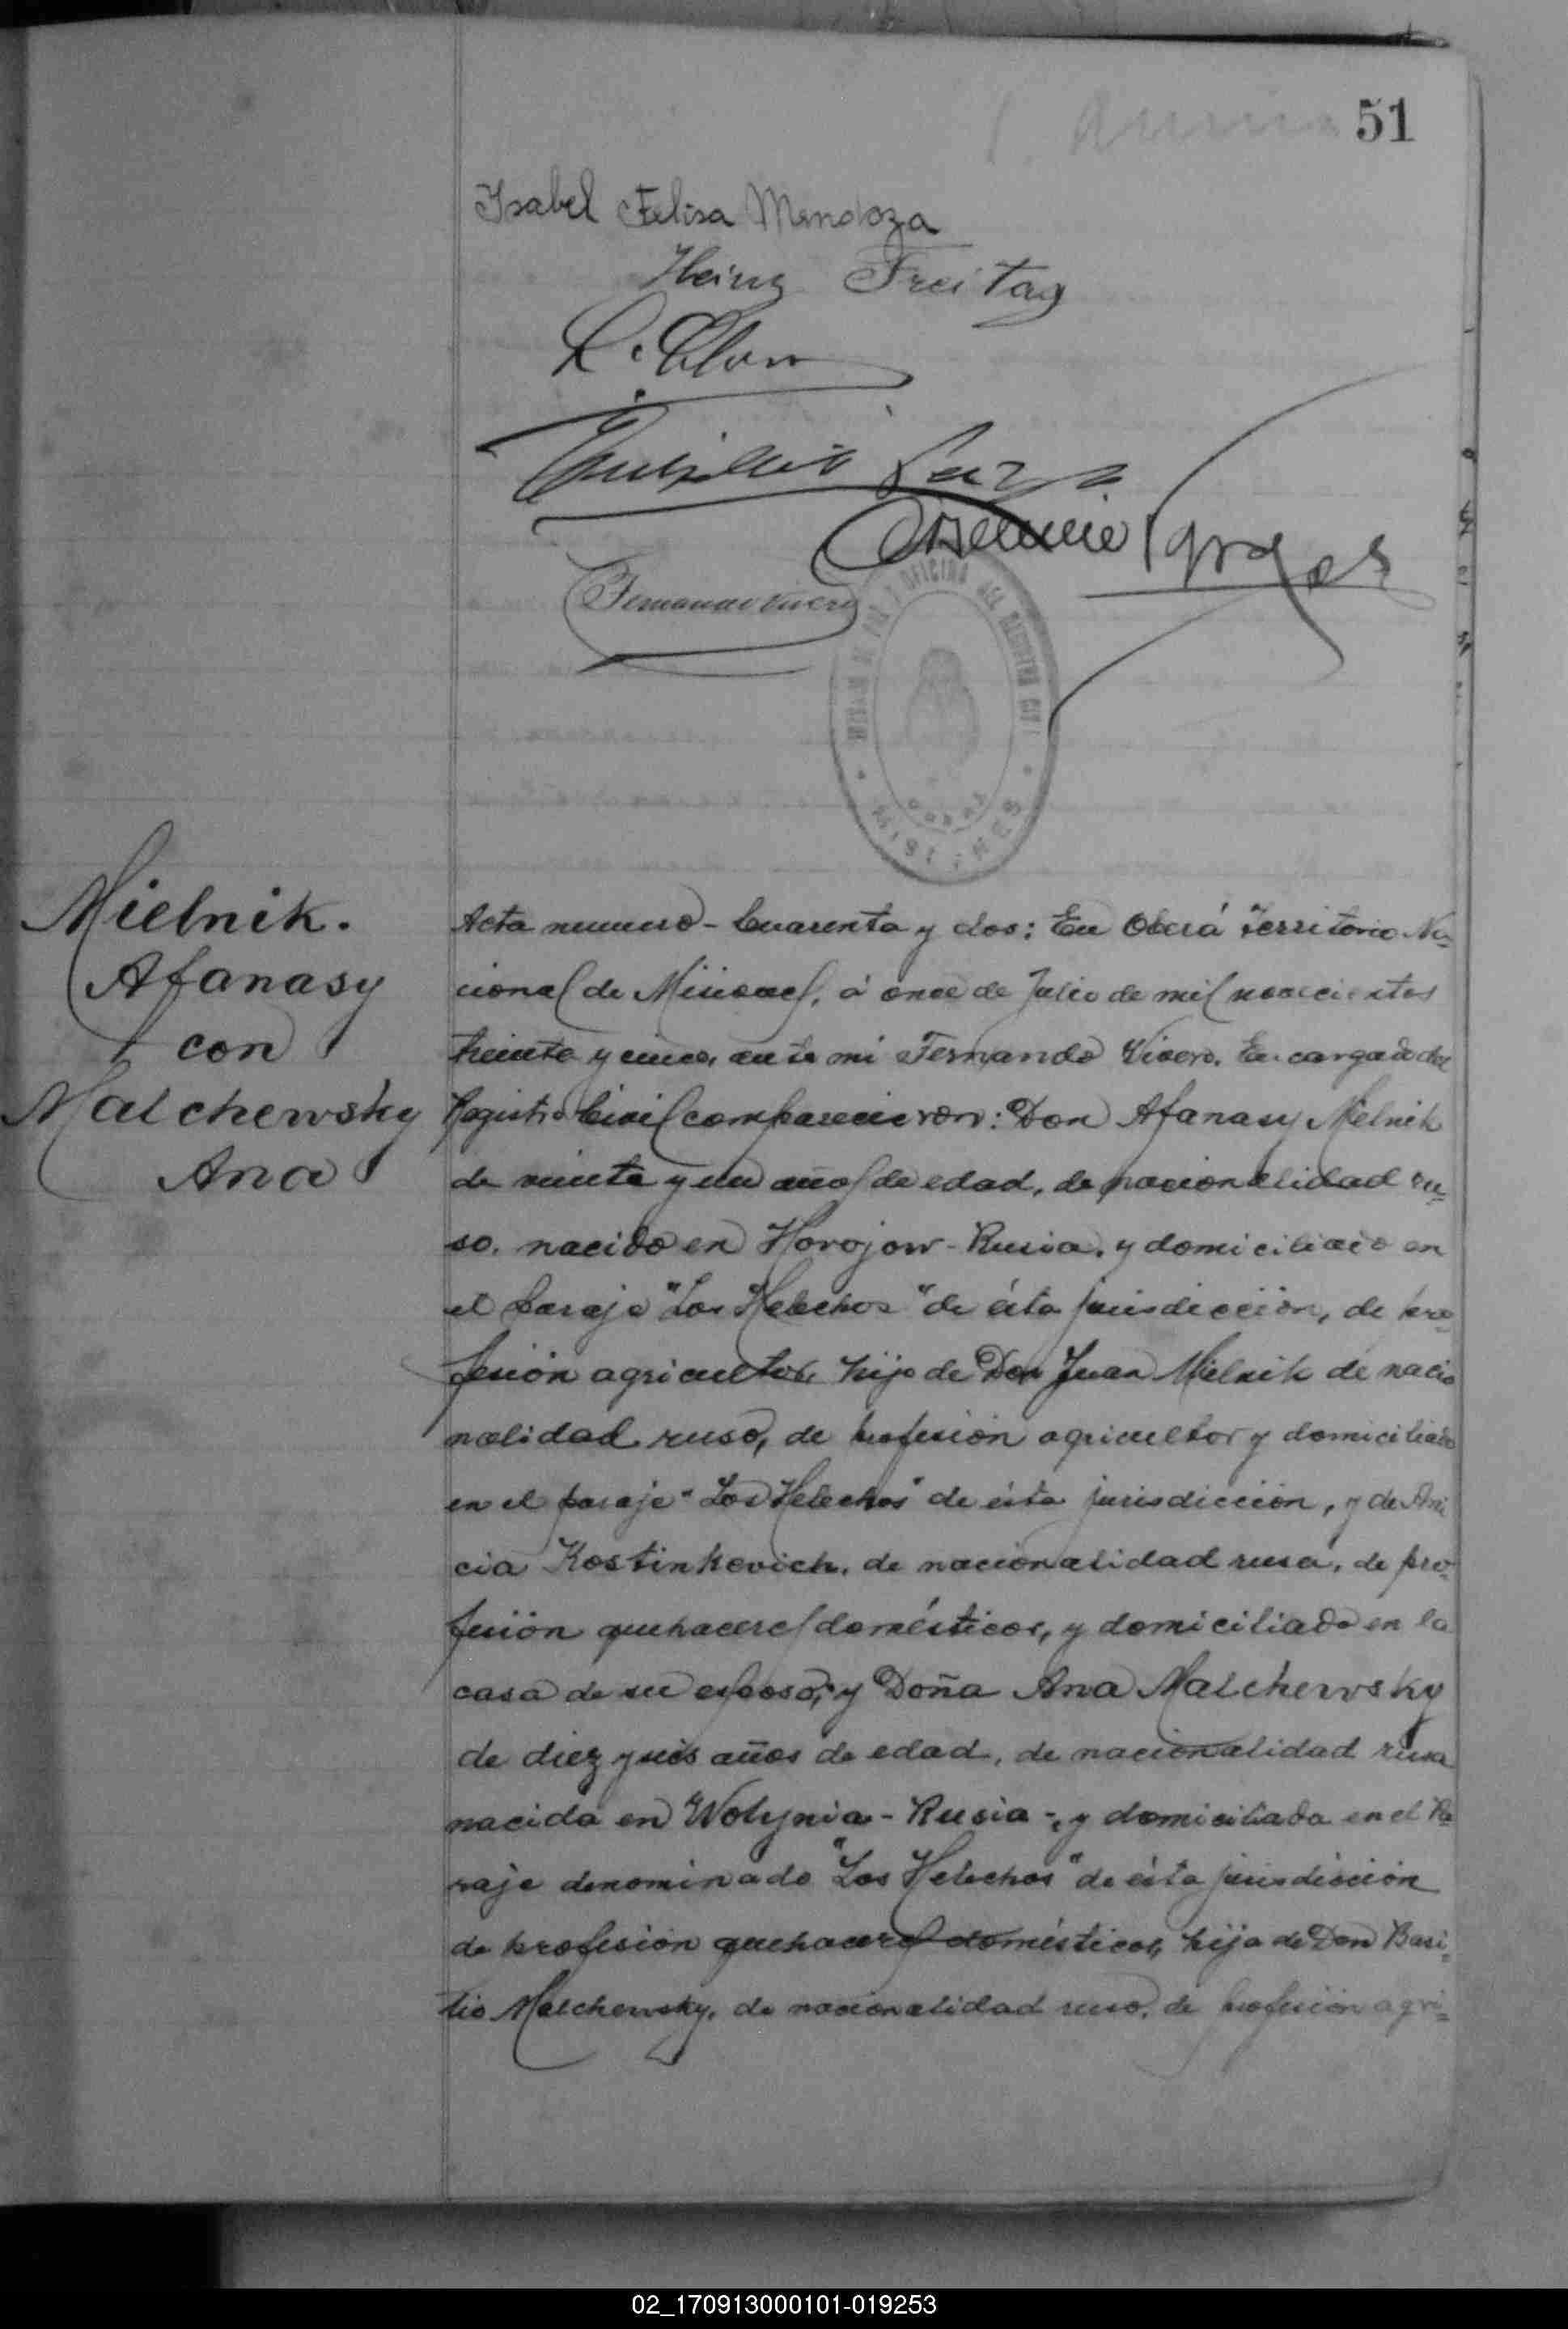 51
Isabel Felisa Mendoza
Heinz Freitag
Fernando Vivero
OFICINA DEL REGISTRO CIVIL
OBERÁ
MISIONES
Mielnik.
Afanasy
con
Malchewsky
Ana
Acta numero - Cuarenta y dos: En Oberá Territorio Na=
cional de Misiones, á once de Julio de mil novecientos
treinta y cinco, ante mi Fernando Vivero. Encargado del
Registro Civil comparecieron: Don Afanasy Mielnik
de veinte y un años de edad, de nacionalidad ru=
so. nacido en Horojow - Rusia. y domiciliado en
el paraje "Los Helechos" de ésta jurisdicción, de pro=
fesión agricultor, hijo de Don Juan Mielnik de nacio
nalidad ruso, de profesión agricultor y domiciliado
en el paraje "Los Helechos" de ésta jurisdicción, y de Ani
cia Kostinkovich. de nacionalidad rusa, de pro=
fesión quehaceres domésticos, y domiciliada en la
casa de su esposo; y Doña Ana Malchewsky
de diez y seis años de edad, de nacionalidad rusa
nacida en Wolynia - Rusia -, y domiciliada en el Pa=
raje denominado "Los Helechos" de ésta jurisdicción
de profesión quehaceres domésticos, hija de Don Basi=
lio Malchewsky, de nacionalidad ruso, de profesión agri=
02_170913000101-019253